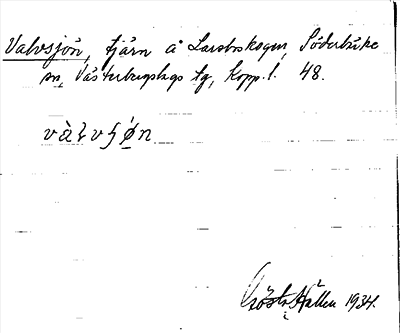 Valvsjön, tjärn å Larsboskogen, Söderbärke
sn, Västerbergslags tg, Kopp. l. 48.
vàlvʃø̀n
Gösta Hållen 1934.